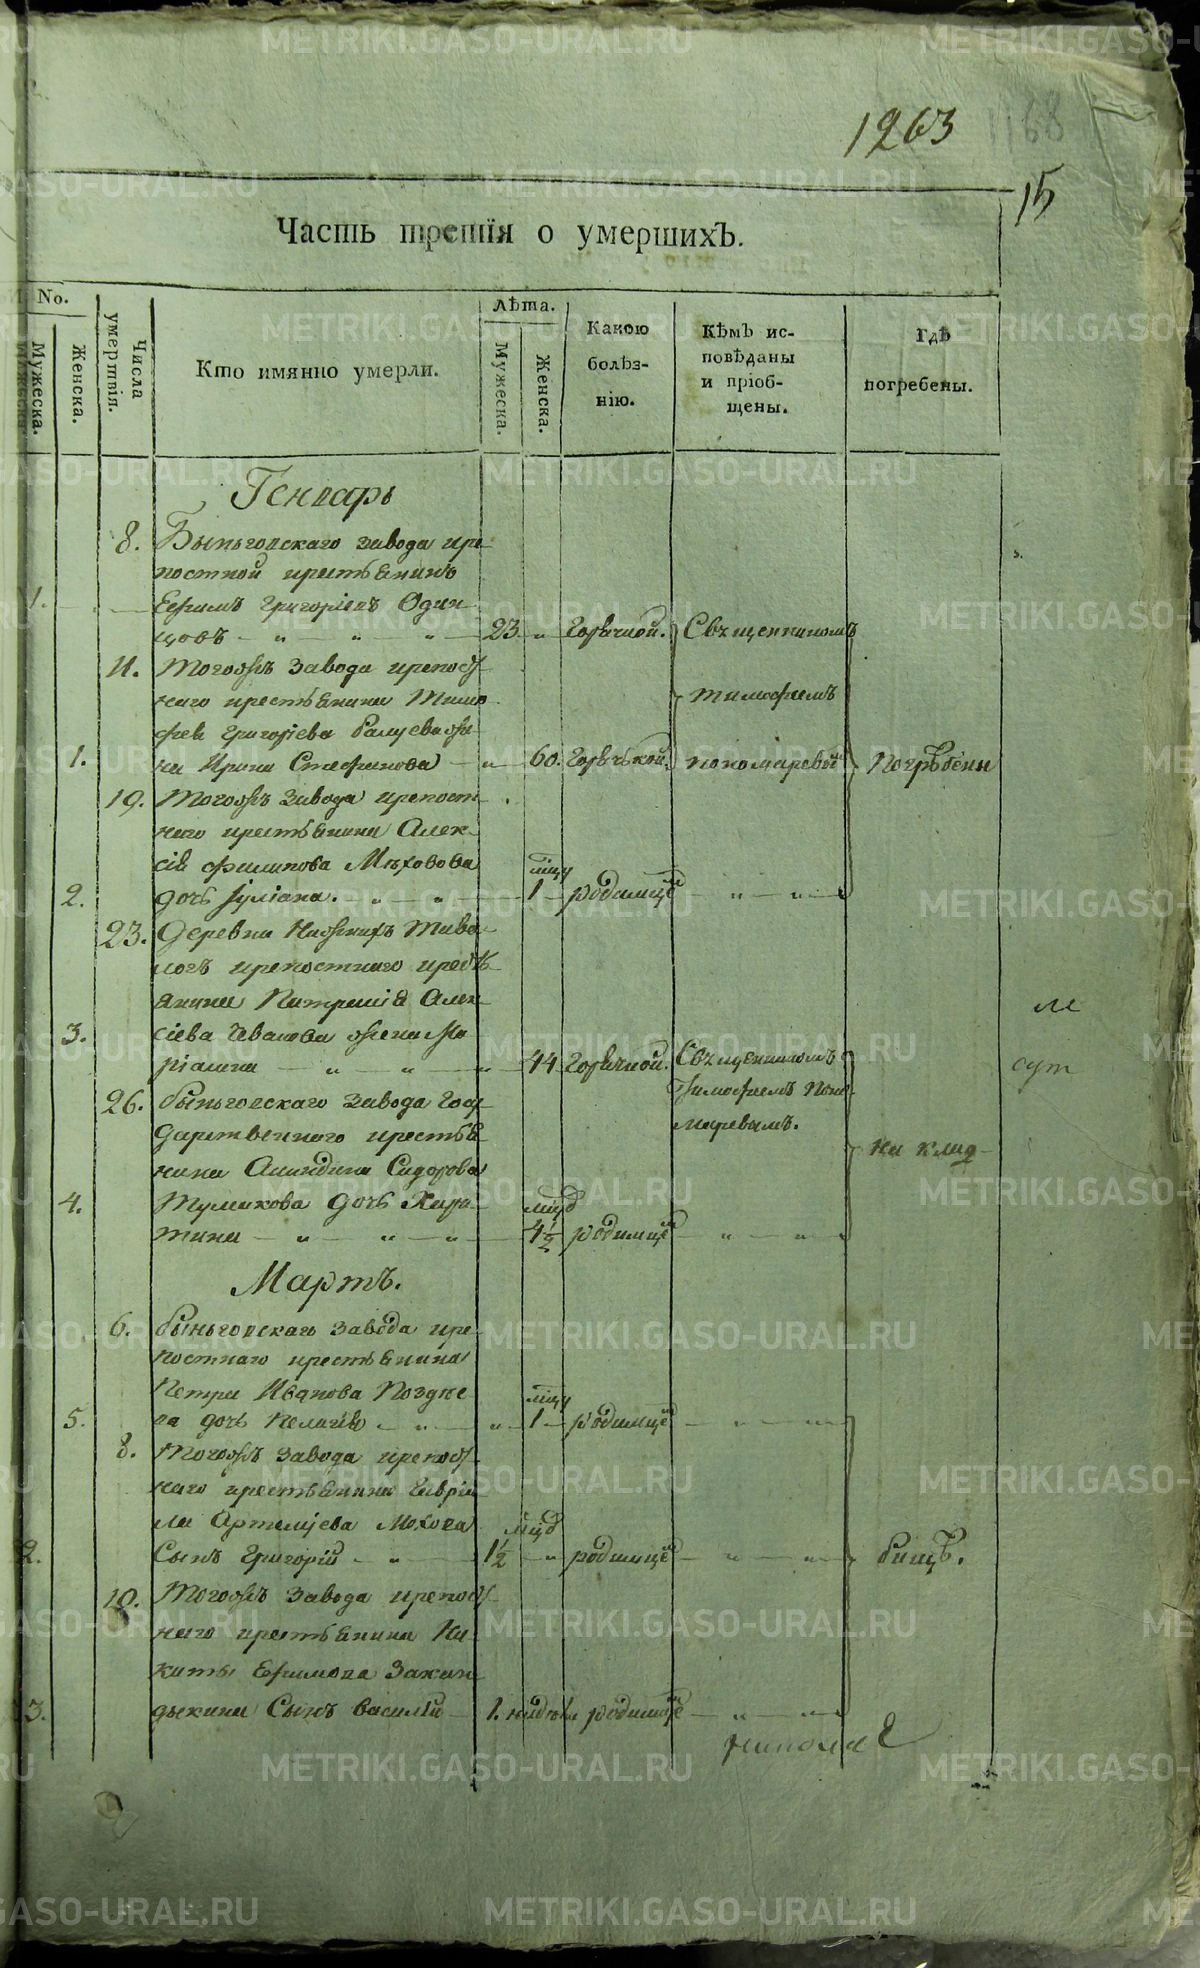 1263
1168
15
Часть третія о умершихЪ.
No.
Мужеска.
Женска.
Числа умертвія.
Кто имянно умерли.
Лѣта.
Мужеска.
Женска.
Какою болѣз-нію.
КѣмЪ ис-повѣданы и пріоб-щены.
Гдѣ погребены.
Генварь
8. Быньговскаго завода кре-
постной крестьянинъ
1. Ефимъ Григорьевъ Один-
цовъ — „ — „ — „ — 23 „ Горячкой. Священникомъ
11. Тогожъ завода крепост-
наго крестьянина Тимо-
Тимофеемъ
фея Григорьева жe-
1. на Ирина Стефанова — „ — 60. Горячкой. Пономаревой Погребены
19. Тогожъ завода крепост-
наго крестьянина Алек-
сія Филипова Мѣховова
2. дочь Іуліана. — „ — „ — 1 родимцѣ — „ — „
23. Деревни Нижнихъ Таво-
логъ крепостнаго кресть-
янина Патрикія Алек-
3. сіева жена Ма-
ріамна — „ — „ — „ 44 Горячкой. Священникомъ
Тимофеемъ Поно-
маревымъ.
26. Быньговскаго завода Госу-
дарственнаго крестья-
нина Акиндина Сидорова
на клад-
4. Тумакова дочь Хари-
тина — „ — „ — „ — 4½ родимцѣ — „ — „
Мартъ.
6. Быньговскаго завода кре-
постнаго крестьянина
Петра Иванова Поздне-
5. ва дочь Пелагія — „ — „ 1 — родимцѣ — „ — „
8. Тогожъ завода крепост-
наго крестьянина Гаврі-
ла Артемьева Мохова
2. Сынъ Григорій — „ — 1½ — „ родимцѣ — „ — „ бищѣ.
10. Тогожъ завода крепост-
наго крестьянина Ни-
киты Ефимова Закин-
3. дыкина Сынъ Василій — 1. недѣли родимцѣ — „ — „
Николае
METRIKI.GASO-URAL.RU